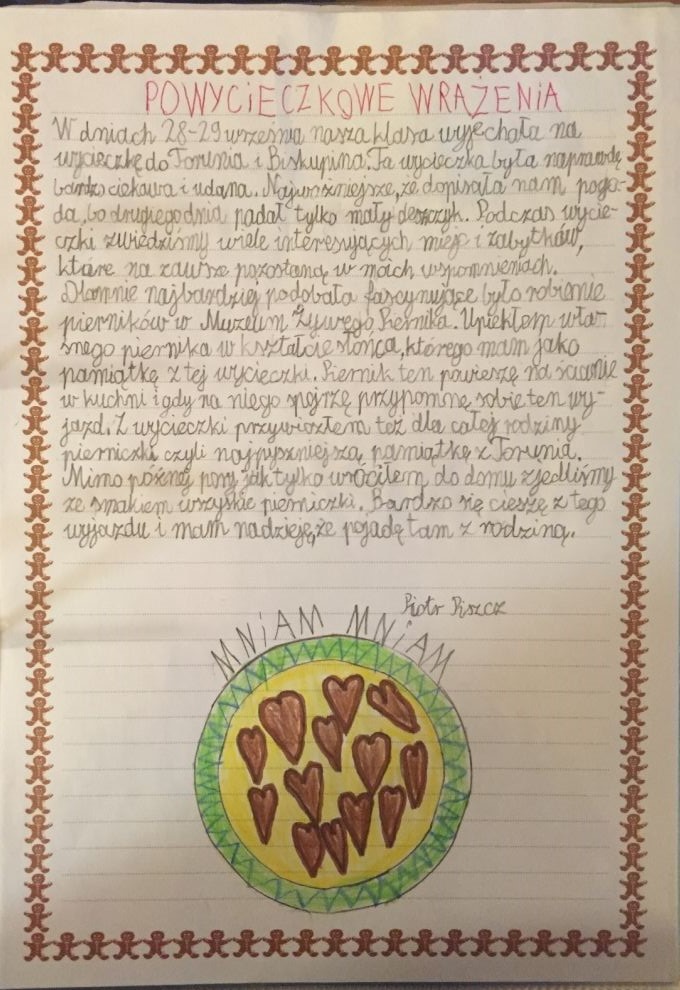 POWYCIECZKOWE WRAŻENIA
W dniach 28-29 września nasza klasa wyjechała na
wycieczkę do Torunia i Biskupina. Ta wycieczka była naprawdę
bardzo ciekawa i udana. Najważniejsze, że dopisała nam pogo-
da, bo drugiego dnia padał tylko mały deszczyk. Podczas wycie-
czki zwiedziliśmy wiele interesujących miejc i zabytków,
które na zawsze pozostaną w moich wspomnieniach.
Dla mnie najbardziej podobała fascynujące było robienie
pierników w Muzeum Żywego Piernika. Upiekłem wła-
snego piernika w kształcie słońca, którego mam jako
pamiątkę z tej wycieczki. Piernik ten powieszę na ścianie
w kuchni i gdy na niego spojrzę przypomnę sobie ten wy-
jazd. Z wycieczki przywiozłem też dla całej rodziny
pierniczki czyli najpyszniejszą pamiątkę z Torunia.
Mimo późnej pory jak tylko wróciłem do domu zjedliśmy
ze smakiem wszyskie pierniczki. Bardzo się cieszę z tego
wyjazdu i mam nadzieję, że pojadę tam z rodziną.
Piotr Piszcz
MNIAM MNIAM